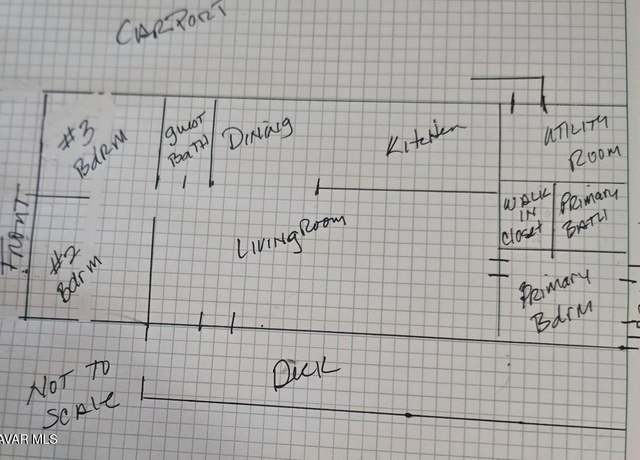 CARPORT
#3
BdRM
guest
BATH
DINING
Kitchen
UTILITY
ROOM
WALK
IN
Closet
PRIMARY
BATH
FRONT
#2
Bdrm
LIVING ROOM
PRIMARY
BdRM
NOT TO
SCALE
DECK
AVAR MLS